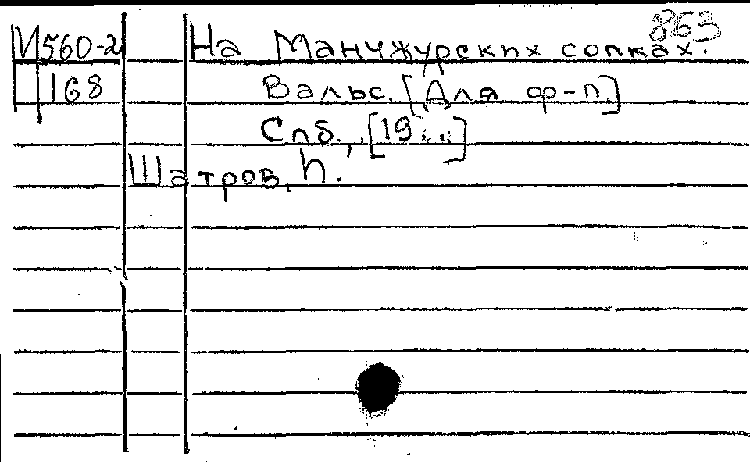 863
М560-2 На Манчжурских сопках.
168 Вальс. [Для ф-п.]
Спб., [19...]
Шатров, И.